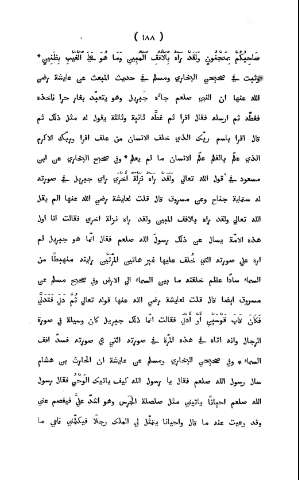 ( ١٨٨ )
صَاحِبُكُمْ بِمَجْنُونٍ وَلَقَدْ رَآهُ بِالْأُفُقِ الْمُبِينِ وَمَا هُوَ عَلَى الْغَيْبِ بِظَنِينٍ *
وثبت في صحيحي البخاري ومسلم في حديث المبعث عن عايشة رضي
الله عنها ان النبي صلعم جاءه جبريل وهو يتعبّد بغار حرا فاخذه
فغطّه ثم ارسله فقال اقرا ثم غطّه ثانية وثالثة يقول له مثل ذلك ثم
قال اقرا باسم ربّك الذي خلق الانسان من علق اقرا وربك الاكرم
الذي علّم بالقلم علّم الانسان ما لم يعلم * وفي صحيح البخاري عن ابى
مسعود في قول الله تعالى وَلَقَدْ رَآهُ نَزْلَةً أُخْرَى راى جبريل في صورته
له ستماية جناح وعن مسروق قال قلت لعايشة رضي الله عنها الم يقل
الله تعالى ولقد راه بالافق المبين ولقد راه نزلة اخرى فقالت انا اول
هذه الامة يسال عن ذلك رسول الله صلعم فقال انما هو جبريل لم
اره على صورته التي خُلق عليها غير هاتين المرّتين رايته منهبطًا من
السماء سادًّا عظم خلقته ما بين السماء الى الارض وفي صحيح مسلم عن
مسروق ايضا قال قلت لعايشة رضي الله عنها قوله تعالى ثُمَّ دَنَا فَتَدَلَّى
فَكَانَ قَابَ قَوْسَيْنِ أَوْ أَدْنَى فقالت انما ذلك جبريل كان وسيلة في صورة
الرجال وانه اتاه في هذه المرّة في صورته التي هي صورته فسدّ افق
السماء * وفي صحيحي البخاري ومسلم عن عايشة ان الحارث بن هشام
سال رسول الله صلعم فقال يا رسول الله كيف ياتيك الوَحْيُ فقال رسول
الله صلعم احيانًا ياتيني مثل صلصلة الجرس وهو اشدّ عليّ فيفصم عني
وقد وعيت عنه ما قال واحيانا يتمثّل لي الملك رجلًا فيكلّمني فاعي ما